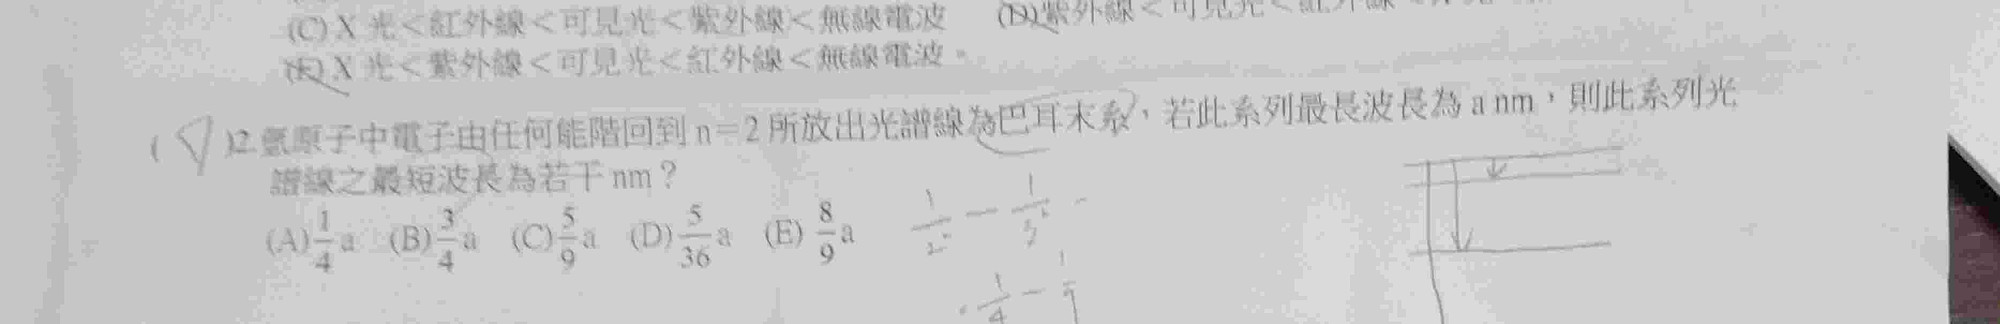 (C) X 光＜紅外線＜可見光＜紫外線＜無線電波 (D)紫外線＜可見光＜紅外線
(E) X 光＜紫外線＜可見光＜紅外線＜無線電波。
( )12.氫原子中電子由任何能階回到 n=2 所放出光譜線為巴耳末系，若此系列最長波長為 a nm，則此系列光
譜線之最短波長為若干 nm？
(A) 1/4 a (B) 3/4 a (C) 5/9 a (D) 5/36 a (E) 8/9 a
1/2² − 1/3²
1/4 − 1/9